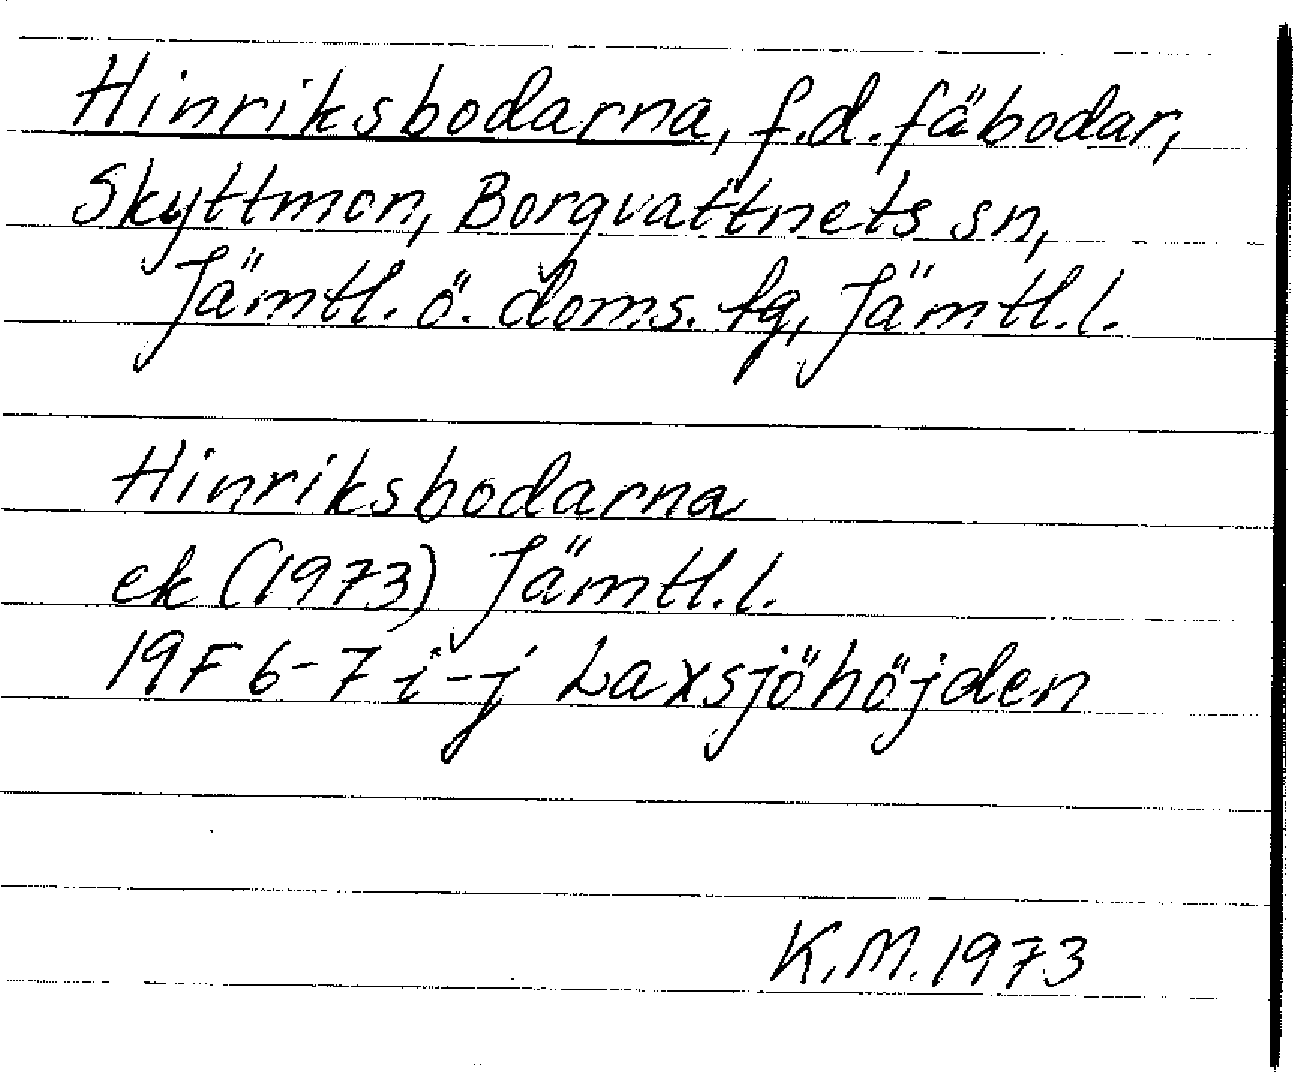 Hinriksbodarna, f.d. fäbodar,
Skyttmon, Borgvattnets sn,
Jämtl. ö. doms. tg, Jämtl. l.
Hinriksbodarna
ek (1973) Jämtl. l.
19F 6-7 i-j Laxsjöhöjden
K.M. 1973